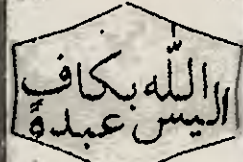 الله بكاف
اليس عبدهً